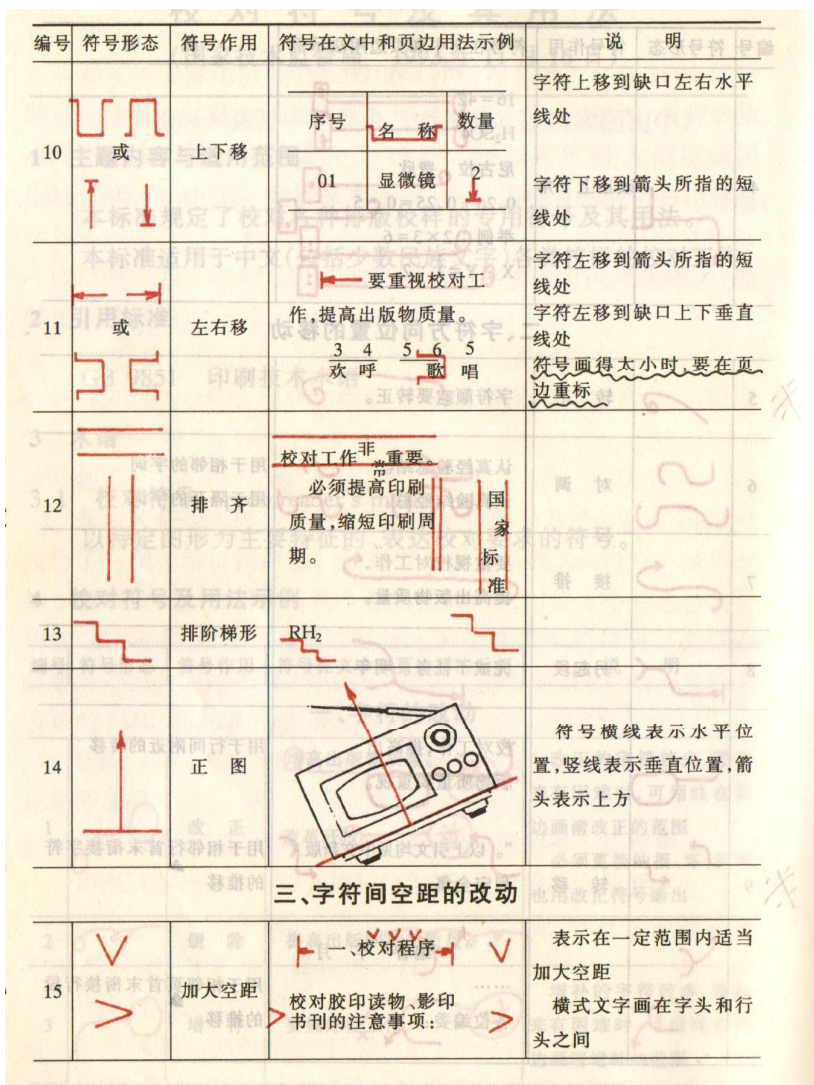 编号 符号形态 符号作用 符号在文中和页边用法示例 说 明
10 或 上下移
序号 名 称 数量
01 显微镜 2
字符上移到缺口左右水平
线处
字符下移到箭头所指的短
线处
11 或 左右移
要重视校对工
作,提高出版物质量。
3 4 5 6 5
欢 呼 歌 唱
字符左移到箭头所指的短
线处
字符左移到缺口上下垂直
线处
符号画得太小时,要在页
边重标
12 排 齐
校对工作非常重要。
必须提高印刷
质量,缩短印刷周
期。
国
家
标
准
13 排阶梯形 RH₂
14 正 图
符号横线表示水平位
置,竖线表示垂直位置,箭
头表示上方
三、字符间空距的改动
15 加大空距
一、校对程序
校对胶印读物、影印
书刊的注意事项:
表示在一定范围内适当
加大空距
横式文字画在字头和行
头之间